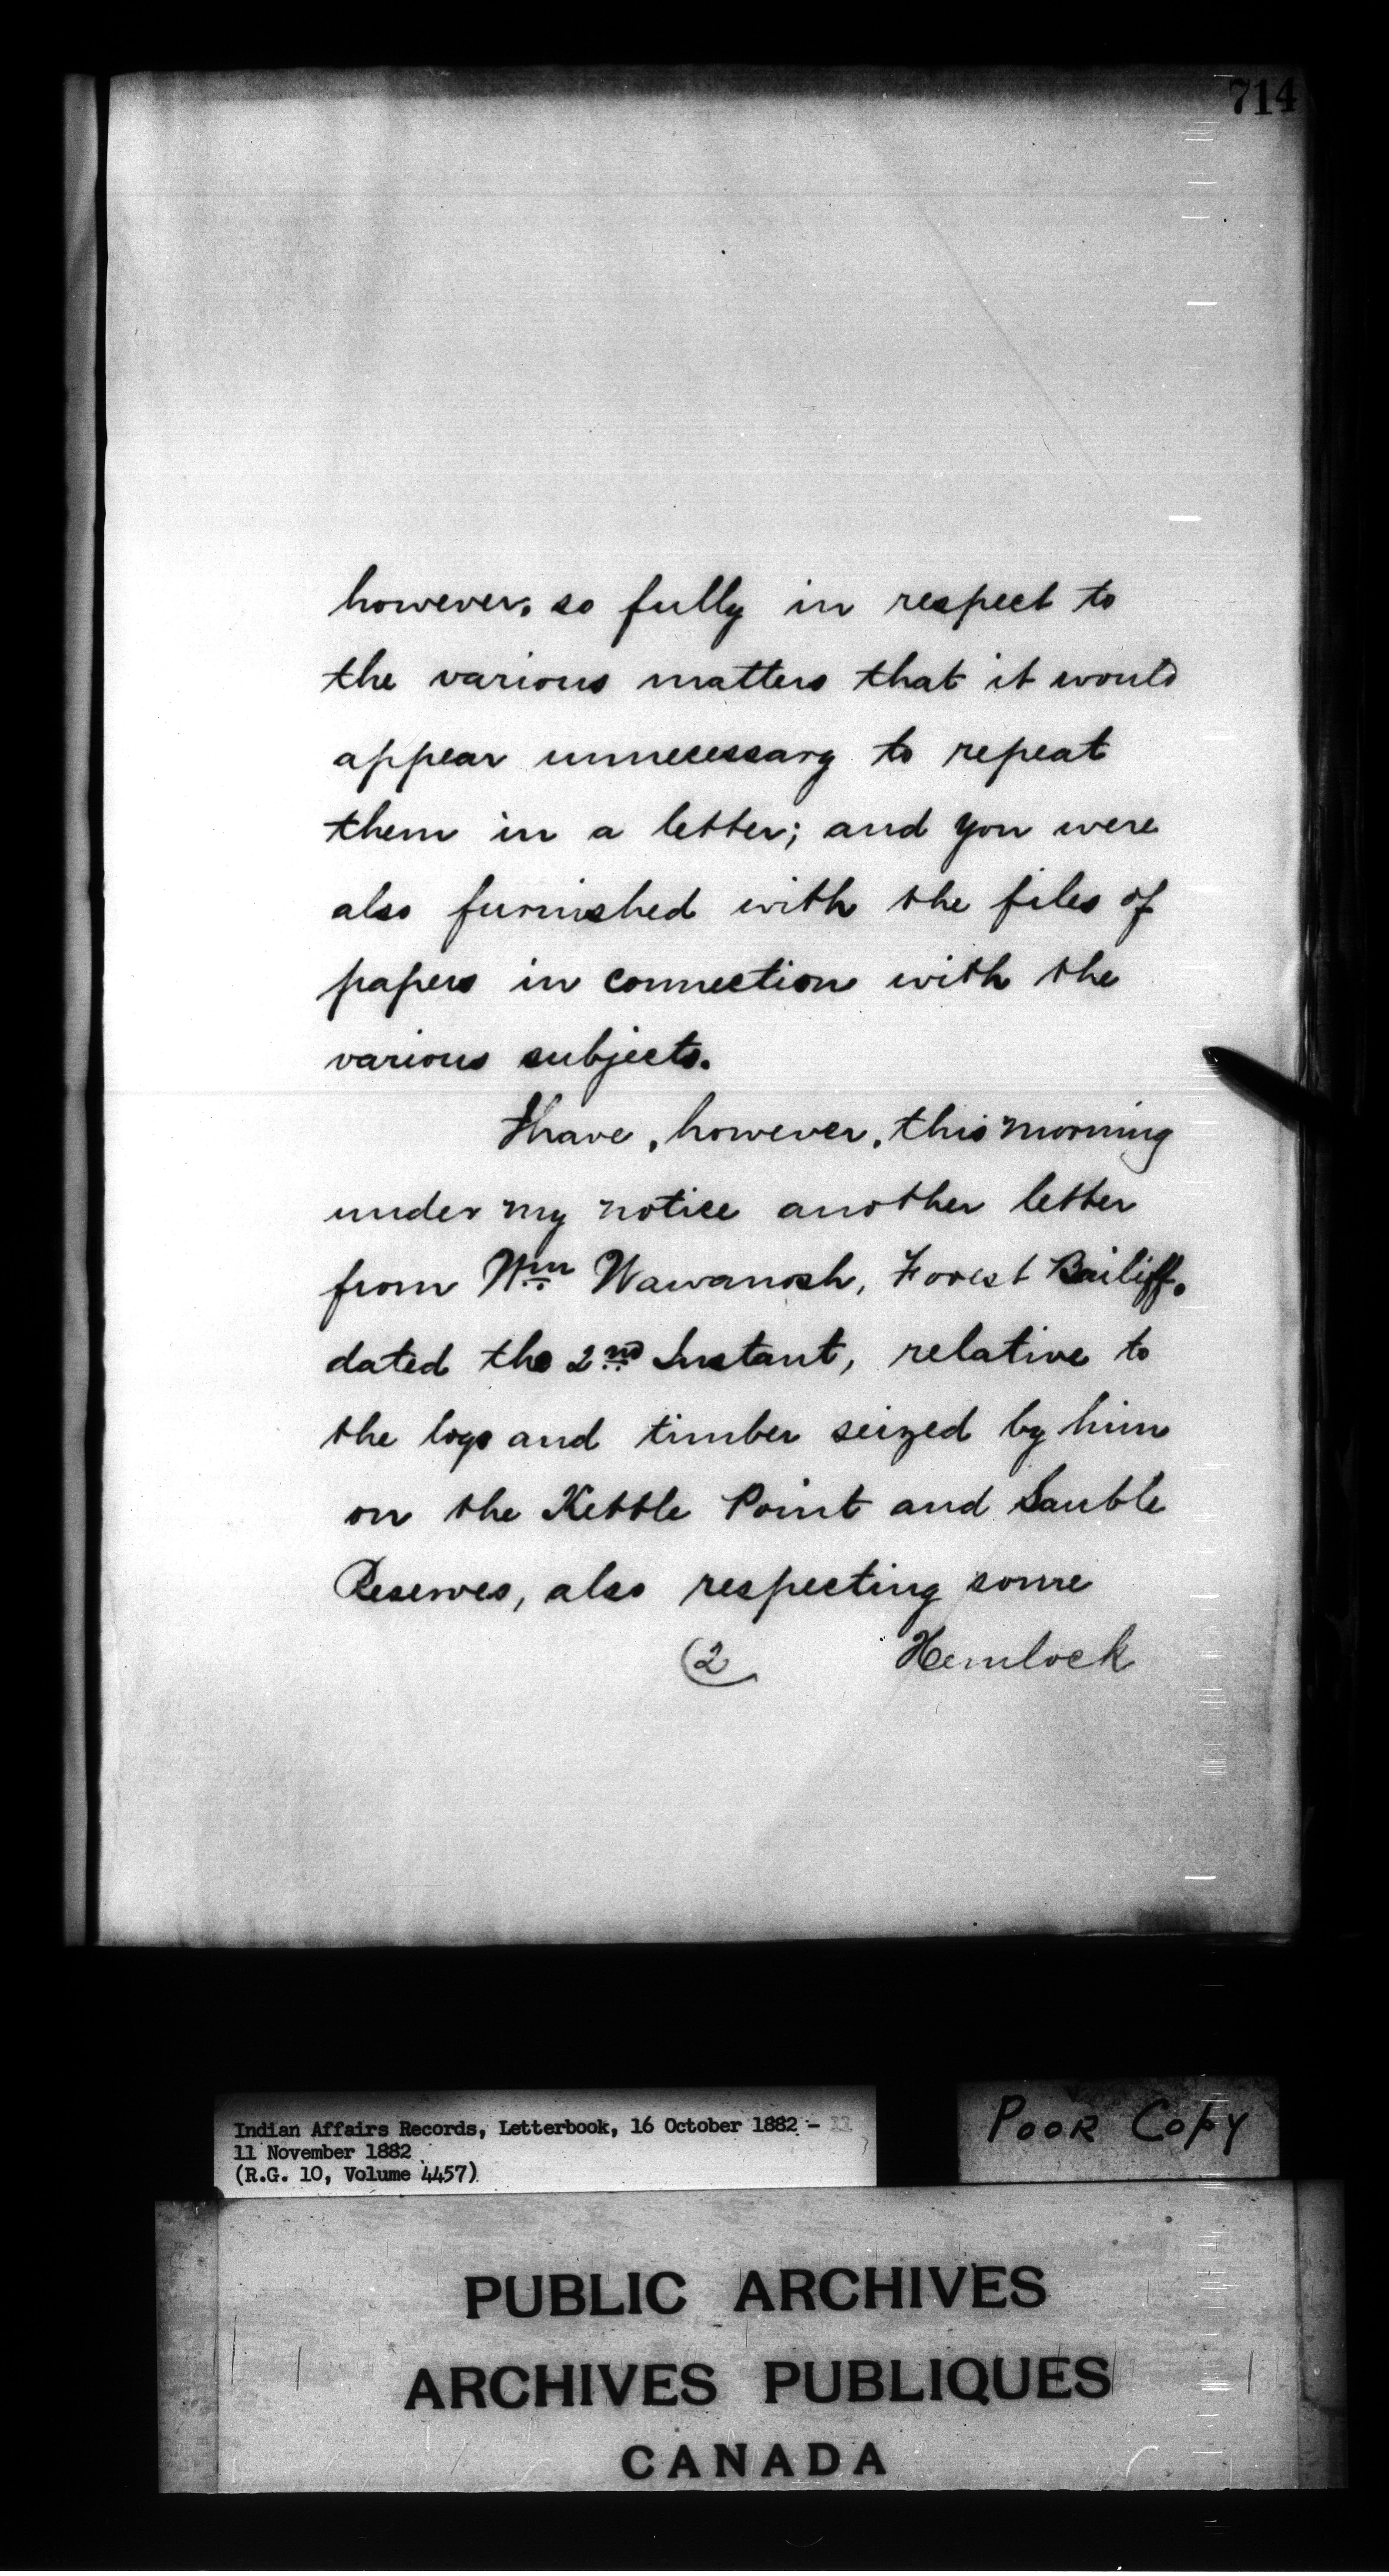 714
however, so fully in respect to
the various matters that it would
appear unnecessary to repeat
them in a letter; and you were
also furnished with the files of
papers in connection with the
various subjects.
I have, however, this morning
under my notice another letter
from Wm Wawanosh, Forest Bailiff,
dated the 2nd Instant, relative to
the logs and timber seized by him
on the Kettle Point and Sauble
Reserves, also respecting some
(2 Hemlock
Indian Affairs Records, Letterbook, 16 October 1882 -
11 November 1882
(R.G. 10, Volume 4457)
POOR COPY
PUBLIC ARCHIVES
ARCHIVES PUBLIQUES
CANADA